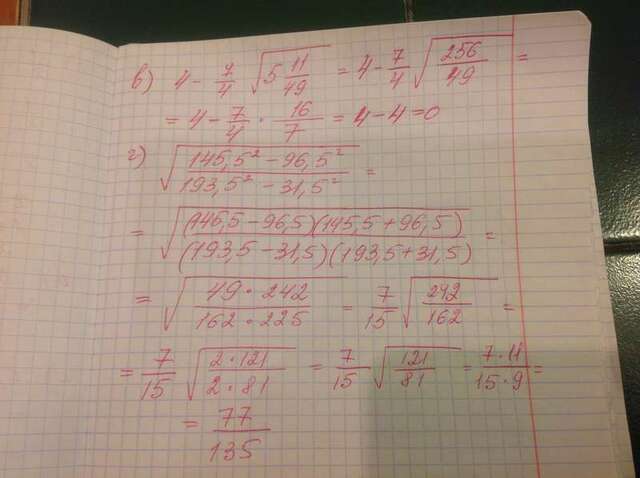 в) 4 - 7/4 √(5 11/49) = 4 - 7/4 √(256/49) =
= 4 - 7/4 · 16/7 = 4 - 4 = 0
г) √((145,5² - 96,5²)/(193,5² - 31,5²)) =
= √((146,5 - 96,5)(145,5 + 96,5)/(193,5 - 31,5)(193,5 + 31,5)) =
= √((49 · 242)/(162 · 225)) = 7/15 √(242/162) =
= 7/15 √((2 · 121)/(2 · 81)) = 7/15 √(121/81) = (7 · 11)/(15 · 9) =
= 77/135